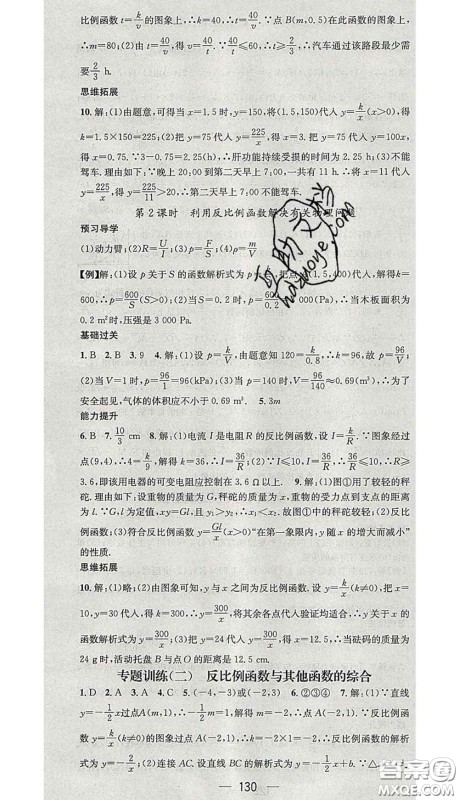 比例函数 t=k/v 的图象上,∴k=40,∴t=40/v. ∵点 B(m,0.5)在此函数的图象上,
∴m=80;(2)由 t=40/v,得 v=40/t. ∵v≤60,∴40/t≤60,∴t≥2/3,∴汽车通过该路段最少需
要 2/3 h.
思维拓展
10.解:(1)由题意,可得当 x=1.5 时,y=150,将(1.5,150)代入 y=k/x(x>0),得
k=1.5×150=225;(2)把 y=75 代入 y=225/x,得 x=3.把 y=75 代入 y=100x,
得 x=0.75.∵3-0.75=2.25,∴肝功能持续受损的时间为 2.25 h;(3)不能
驾车.理由如下:∵晚上 20:00 到第二天早上 7:00,一共有 11 h.∴将 x=11 代入
y=225/x,得 y=225/11>20,∴第二天早上 7:00 不能驾车.
第 2 课时 利用反比例函数解决有关物理问题
预习导学
(1)动力臂;(2)R=U/I;(3)P=F/S;(4)ρ=m/V
【例】解:(1)设 p 关于 S 的函数解析式为 p=k/S,把点(1.5,400)代入,解得 k=
600,∴p=600/S(S>0);(2)当 S=0.2 时,p=600/0.2=3 000(Pa),∴当木板面积
为 0.2 m²时,压强是 3 000 Pa.
基础过关
1.B 2.B 3.9 4.解:(1)设 p=k/V,由题意知 120=k/0.8,∴k=96,故 p=96/V;
(2)当 V=1 时,p=96/1=96(kPa);(3)当 p=140 时,V=96/140≈0.69(m³).∴为了
安全起见,气体的体积应不小于 0.69 m³. 5.3m
能力提升
6.B 7.10/3 cm 8.解:(1)电流 I 是电阻 R 的反比例函数,设 I=k/R.∵图象经过
点(9,4),∴4=k/9,解得 k=36,∴I=36/R;(2)∵I≤10,I=36/R,∴36/R≤10,∴R≥
3.6,即该用电器的可变电阻应控制在 3.6 Ω以上. 9.解:(1)图①用了较轻的秤
砣.理由如下:设重物的质量为 G,秤砣的质量为 x,重物的受力点到支点的距离
为 l.∵G,l 为定值,xy=Gl,∴x₁>x₂.故图①中的秤砣较轻;(2)∵xy=Gl,
∴y=Gl/x;(3)符合反比例函数 y=Gl/x(x>0)“在第一象限内,y 随 x 的增大而减小”
的性质.
思维拓展
10.解:(1)略;(2)由图象可知,y 与 x 之间为反比例函数.设 y=k/x(k≠0),把 x=
10,y=30 代入,得 k=300,∴y=300/x,将其余各点代入验证均适合,∴y 关于 x 的
函数解析式为 y=300/x;(3)把 y=24 代入 y=300/x,得 x=12.5,∴当砝码的质量为
24 g 时,活动托盘 B 与点 O 的距离是 12.5 cm.
专题训练(二) 反比例函数与其他函数的综合
1.D 2.A 3.A 4.C 5.(-4,-3)或(-2,3) 6.②③④ 7.解:(1)∵直线
y=-1/2x过点A(m,1),∴-1/2m=1,解得 m=-2,∴A(-2,1).∵反比例函数
y=k/x(k≠0)的图象过点 A(-2,1),∴k=-2×1=-2,∴反比例函数的解析式为
y=-2/x;(2)连接 AC.设直线 BC 的解析式为 y=-1/2x+b.∵
130
hdzuoye.com
答案圈
MXQE.COM